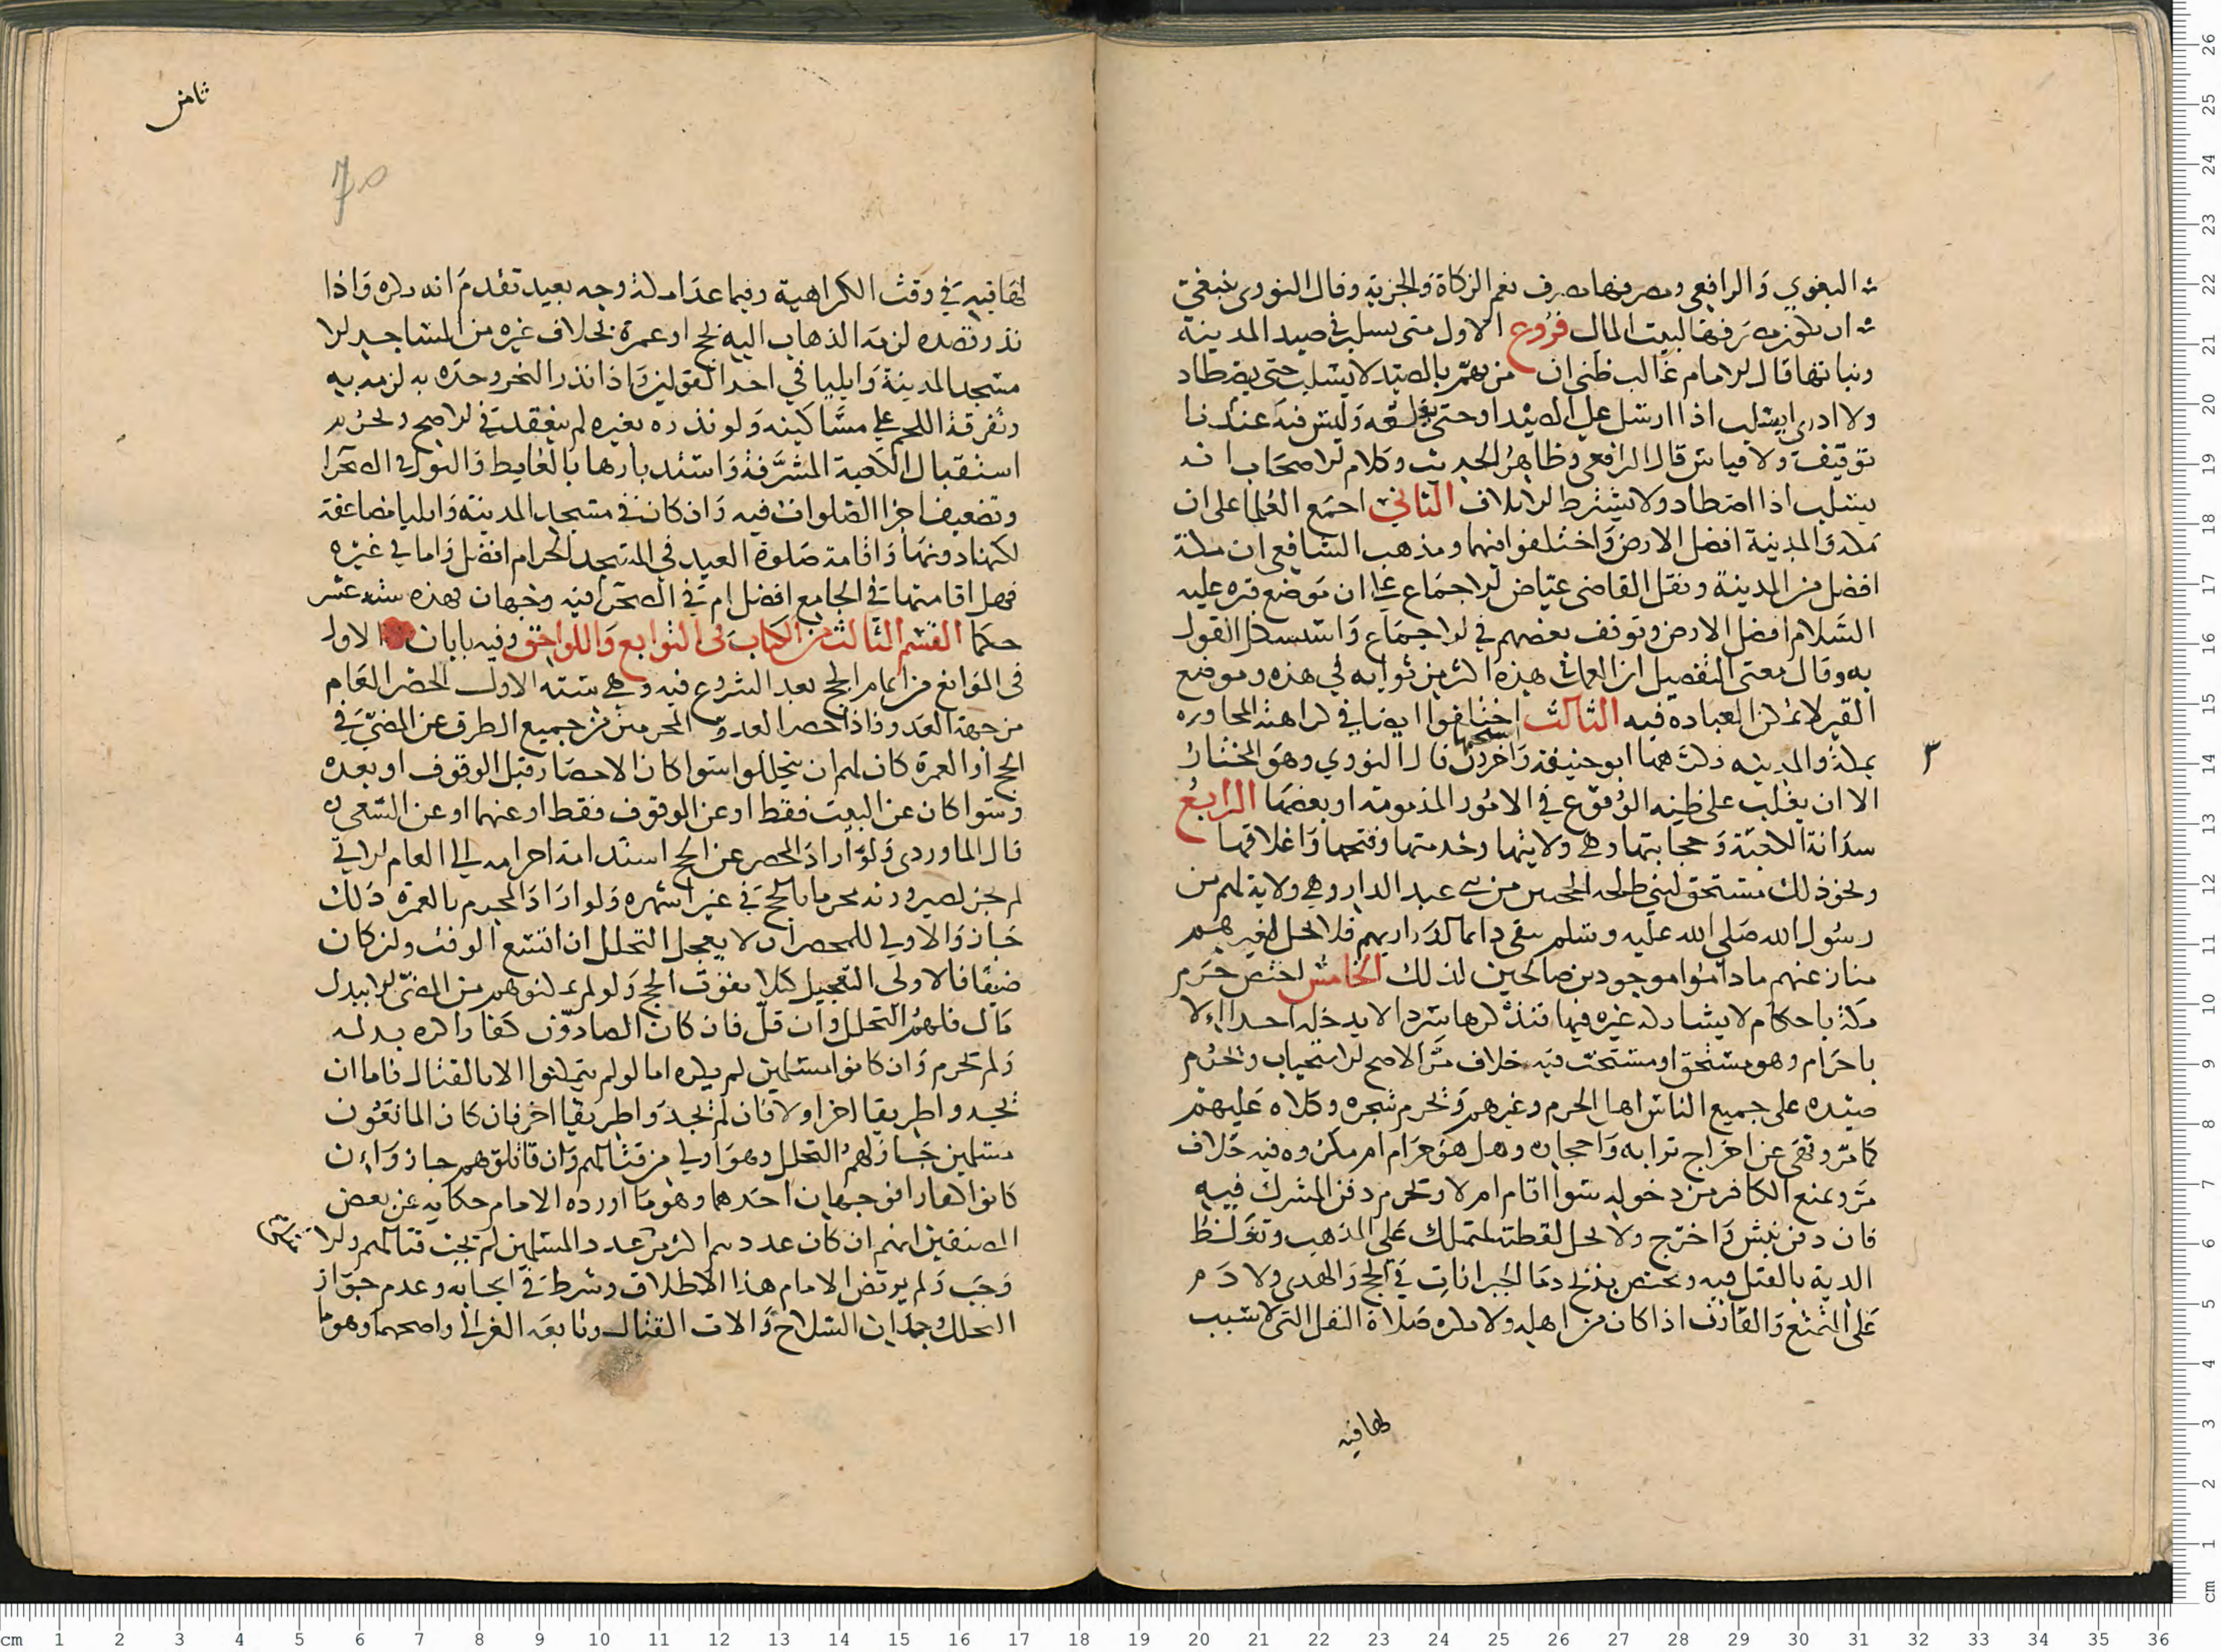 البغوي والرافعي ومصرفها مصرف نعم الزكاة والجزية وقال النووي ينبغي
ان يكون مصرفها لبيت المال فروع الاول متى يسلب في صيد المدينة
ونباتها قال الامام غالب ظني ان من يهم بالصيد لا يسلب حتى يصطاد
ولا ادري ايسلب اذا ارسل على الصيد او حتى يتلفه وليس فيه عندنا
توقيف ولا قياس قال الرافعي وظاهر الحديث وكلام الاصحاب انه
يسلب اذا اصطاد ولا يشترط الاتلاف الثاني اجمع العلما على ان
مكة والمدينة افضل الارض واختلفوا فيهما ومذهب الشافعي ان مكة
افضل من المدينة ونقل القاضي عياض الاجماع على ان موضع قبره عليه
السلام افضل الارض وتوقف بعضهم في الاجماع واستشكل القول
به وقال معنى التفضيل ان العمل في هذه اكثر من ثوابه في هذه وموضع
القبر لا يمكن العباده فيه الثالث اختلفوا ايضا في كراهة المجاوره
بمكة والمدينه فكرهها ابو حنيفة واخرون قال النووي وهو المختار
الا ان يغلب على ظنه الوقوع في الامور المذمومة او بعضها الرابع
سدانة الكعبة وحجابتها وهي ولايتها وخدمتها وفتحها واغلاقها
ونحو ذلك مستحق لبني طلحه الحجبين من بني عبد الدار وهي ولاية لهم من
رسول الله صلي الله عليه وسلم يبقى دايما لذراريهم فلا يحل لغيرهم
منازعتهم ما داموا موجودين صالحين لذلك الخامس اختص حرم
مكة باحكام لا يشاركه غيره فيها فنذكرها سردا لا يدخله احد الا
باحرام وهو مستحق او مستحب فيه خلاف مر الاصح الاستحباب ويحرم
صيده على جميع الناس اهل الحرم وغيرهم ويحرم شجره وكلاه عليهم
كما مر ونهى عن اخراج ترابه واحجاره وهل هو حرام ام مكروه فيه خلاف
مر ويمنع الكافر من دخوله سوا اقام ام لا ويحرم دفن المشرك فيه
فان دفن نبش واخرج ولا تحل لقطته لمتملك على المذهب وتغلظ
الدية بالقتل فيه ويختص بذبح دما الجبرانات في الحج والهدي ولا دم
على المتمتع والقارن اذا كان من اهله ولا يكره صلاة النفل التي لا سبب
لها فيه
ثامن
70
لها فيه في وقت الكراهية وفيما عدا مكة وجه بعيد تقدم انه يكره واذا
نذر قصده لزمه الذهاب اليه بحج او عمرة بخلاف غيره من المساجد الا
مسجد المدينة وايليا في احد القولين واذا نذر النحر وحده به لزمه به
وتفرقة اللحم على مساكينه ولو نذره بغيره لم ينعقد في الاصح ويحرم
استقبال الكعبة المشرفة واستدبارها بالغايط والبول في الصحرا
وتضعيف اجر الصلوات فيه وان كان في مسجد المدينة وايليا مضاعفة
لكنها دونها واقامة صلوة العيد في المسجد الحرام افضل واما في غيره
فهل اقامتها في الجامع افضل ام في الصحرا فيه وجهان فهذه ستة عشر
حكما القسم الثالث من الكتاب في التوابع واللواحق وفيه بابان الاول
في الموانع من اتمام الحج بعد الشروع فيه وهي ستة الاول الحصر العام
من جهة العدو فاذا احصر العدو المحرمين من جميع الطرق عن المضي في
الحج او العمرة كان لهم ان يتحللوا سوا كان الاحصار قبل الوقوف او بعده
وسوا كان عن البيت فقط او عن الوقوف فقط او عنهما او عن السعي
قال الماوردي ولو اراد المحصر عن الحج استدامة احرامه الي العام الاتي
لم يجز لصيرورته محرما بالحج في غير اشهره ولو اراد المحرم بالعمرة ذلك
جاز والاولي للمحصر ان لا يعجل التحلل ان اتسع الوقت ولن كان
ضيقا فالاولي التعجيل كيلا يفوت الحج ولو لم يمكنوهم من المضي الا ببذل
مال فلهم التحلل وان قل فان كان الصادون كفارا كره بذله
ولم يحرم وان كانوا مسلمين لم يكره اما لو لم يتمكنوا الا بالقتال فاما ان
يجدوا طريقا اخر اولا فان لم يجدوا طريقا اخر فان كان المانعون
مسلمين جاز لهم التحلل وهو اولي من قتالهم وان قاتلوهم جاز وان
كانوا كفارا فوجهان احدهما وهو ما اورده الامام حكايه عن بعض
المصنفين انهم ان كان عددهم اكثر من عدد المسلمين لم يجب قتالهم والا
وجب ولم يرتض الامام هذا الاطلاق وشرط في ايجابه وعدم جواز
التحلل وجدان السلاح والات القتال وتابعه الغزالي واصحهما وهو ما